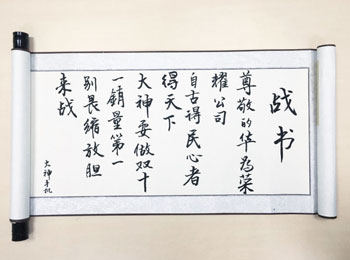 战书
尊敬的华为荣
耀公司
自古得民心者
得天下
大神要做双十
一销量第一
别畏缩放胆
来战
大神手机